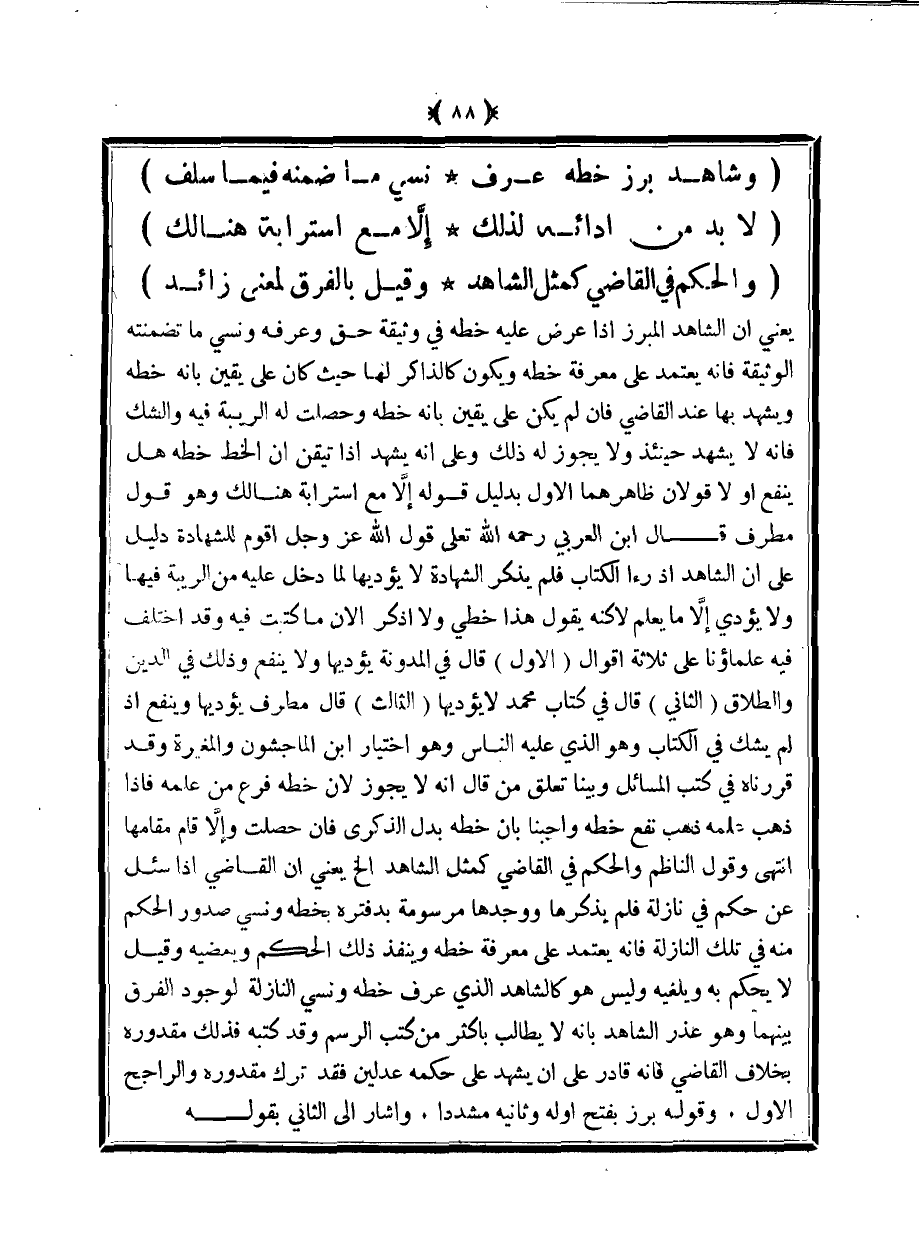 ﴿ ٨٨ ﴾
( وشاهد برز خطه عرف * نسي ما ضمنه فيما سلف )
( لا بد من ادائه لذلك * إلَّا مع استرابة هنالك )
( والحكم في القاضي كمثل الشاهد * وقيل بالفرق لمعنى زائد )
يعني ان الشاهد المبرز اذا عرض عليه خطه في وثيقة حق وعرفه ونسي ما تضمنته
الوثيقة فانه يعتمد على معرفة خطه ويكون كالذاكر لها حيث كان على يقين بانه خطه
ويشهد بها عند القاضي فان لم يكن على يقين بانه خطه وحصلت له الريبة فيه والشك
فانه لا يشهد حينئذ ولا يجوز له ذلك وعلى انه يشهد اذا تيقن ان الخط خطه هل
ينفع او لا قولان ظاهرهما الاول بدليل قوله إلَّا مع استرابة هنالك وهو قول
مطرف قال ابن العربي رحمه الله تعلى قول الله عز وجل اقوم للشهادة دليل
على ان الشاهد اذ رءا الكتاب فلم يذكر الشهادة لا يؤديها لما دخل عليه من الريبة فيها
ولا يؤدي إلَّا ما يعلم لاكنه يقول هذا خطي ولا اذكر الان ما كتبت فيه وقد اختلف
فيه علماؤنا على ثلاثة اقوال ( الاول ) قال في المدونة يؤديها ولا ينفع وذلك في الدين
والطلاق ( الثاني ) قال في كتاب محمد لا يؤديها ( الثالث ) قال مطرف يؤديها وينفع اذ
لم يشك في الكتاب وهو الذي عليه الناس وهو اختيار ابن الماجشون والمغرة وقد
قررناه في كتب المسائل وبينا تعلق من قال انه لا يجوز لان خطه فرع من علمه فاذا
ذهب علمه ذهب نفع خطه واجبنا بان خطه بدل الذكرى فان حصلت وإلَّا قام مقامها
انتهى وقول الناظم والحكم في القاضي كمثل الشاهد الخ يعني ان القاضي اذا سئل
عن حكم في نازلة فلم يذكرها ووجدها مرسومة بدفتره بخطه ونسي صدور الحكم
منه في تلك النازلة فانه يعتمد على معرفة خطه وينفذ ذلك الحكم ويمضيه وقيل
لا يحكم به ويلغيه وليس هو كالشاهد الذي عرف خطه ونسي النازلة لوجود الفرق
بينهما وهو عذر الشاهد بانه لا يطالب باكثر من كتب الرسم وقد كتبه فذلك مقدوره
بخلاف القاضي فانه قادر على ان يشهد على حكمه عدلين فقد ترك مقدوره والراجح
الاول . وقوله برز بفتح اوله وثانيه مشددا . واشار الى الثاني بقوله